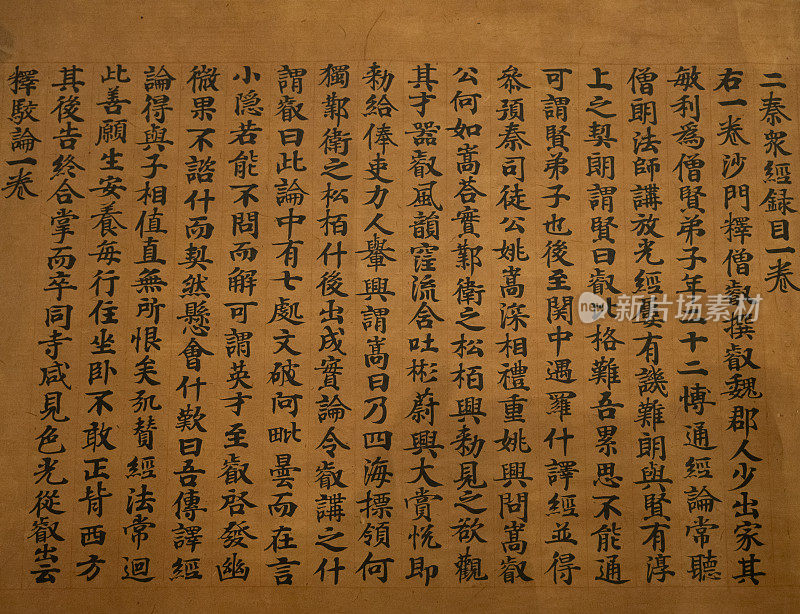 二秦眾經錄目一卷
右一卷沙門釋僧叡撰叡魏郡人少出家其
敏利為僧賢弟子年二十二博通經論常聽
僧朗法師講放光經屢有譏難朗與賢有淳
上之契朗謂賢曰叡格難吾累思不能通
可謂賢弟子也後至関中遇羅什譯經並得
叅預秦司徒公姚嵩深相禮重姚興問嵩叡
公何如嵩荅實鄴衛之松栢興勑見之欲觀
其才器叡風韻窪流含吐彬蔚興大賞悅即
勑給俸吏力人轝興謂嵩曰乃四海標領何
獨鄴衛之松栢什後出成實論令叡講之什
謂叡曰此論中有七處文破阿毗曇而在言
小隱若能不問而解可謂英才至叡啓發幽
微果不諮什而契然懸會什歎曰吾傳譯經
論得與子相值直無所恨矣贊經法常迴
此善願生安養每行住坐卧不敢正背西方
其後告終合掌而卒同寺咸見色光從叡出云
擇駮論一卷
new
新片场素材